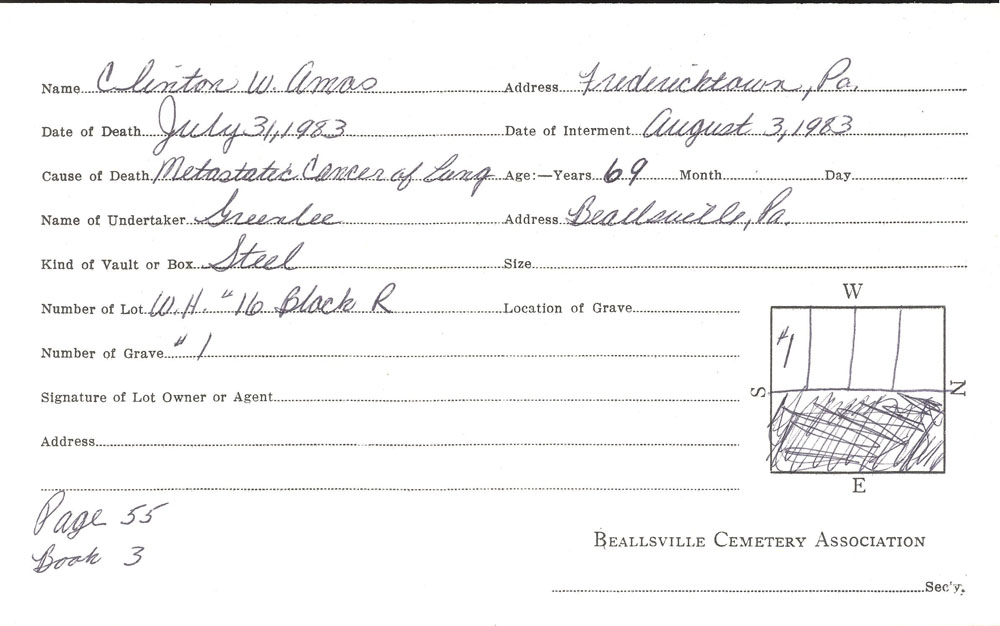 Name Clinton W. Amos Address Fredericktown, Pa.
Date of Death July 31, 1983 Date of Interment August 3, 1983
Cause of Death Metastatic Cancer of Lung Age:—Years 69 Month Day
Name of Undertaker Greenlee Address Beallsville, Pa.
Kind of Vault or Box Steel Size
Number of Lot W.H. #16 Block R Location of Grave
Number of Grave #1
Signature of Lot Owner or Agent
Address
W
#1
S
N
E
Page 55
Book 3
BEALLSVILLE CEMETERY ASSOCIATION
Sec'y.